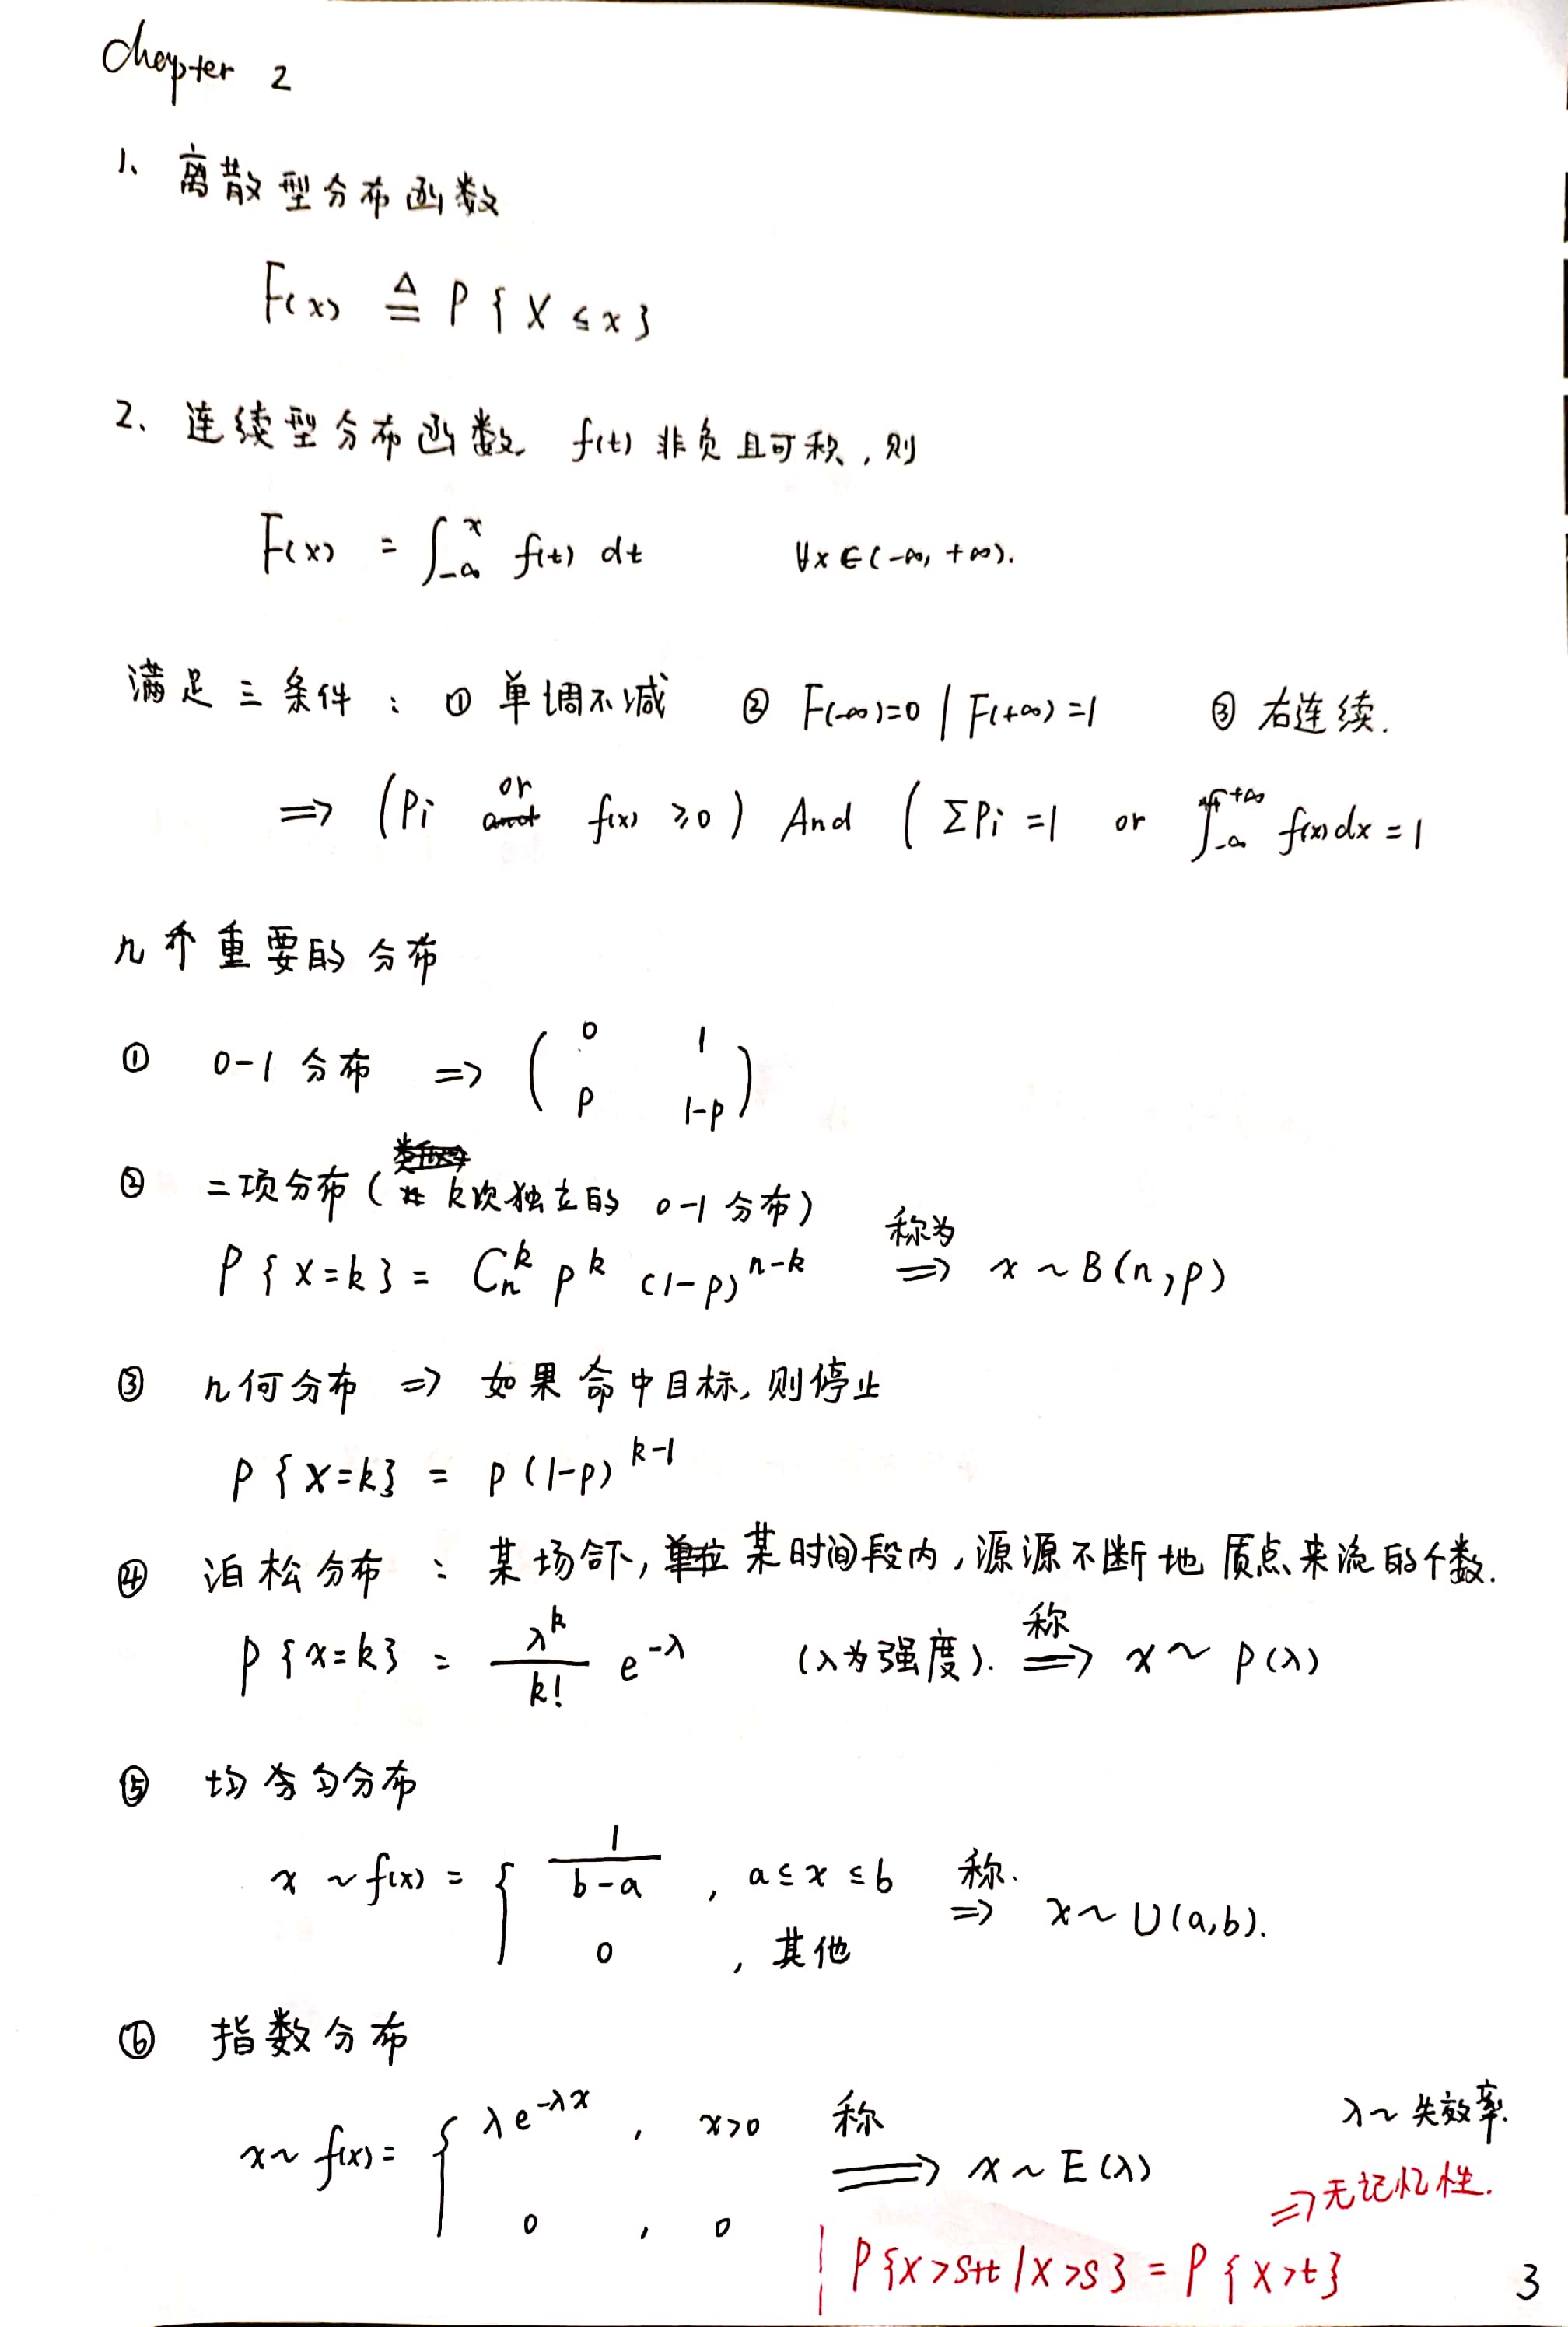 Chapter 2
1、离散型分布函数
F(x) ≜ P{X≤x}
2、连续型分布函数 f(t) 非负且可积，则
F(x) = ∫_{-∞}^{x} f(t) dt ∀x∈(-∞, +∞).
满足三条件：① 单调不减 ② F(-∞)=0 | F(+∞)=1 ③ 右连续.
⇒ (Pi or f(x) ≥0) And ( ΣPi =1 or ∫_{-∞}^{+∞} f(x)dx = 1
几个重要的分布
① 0-1 分布 ⇒ ( 0 1
P 1-P )
② 二项分布 ( k次独立的 0-1 分布)
P{X=k} = C_n^k P^k (1-P)^{n-k} 称为 ⇒ x ~ B(n, p)
③ 几何分布 ⇒ 如果命中目标, 则停止
P{X=k} = P(1-P)^{k-1}
④ 泊松分布 : 某场合下, 某时间段内, 源源不断地 质点来流的个数.
P{x=k} = λ^k / k! e^{-λ} (λ为强度). 称 ⇒ x ~ P(λ)
⑤ 均匀分布
x ~ f(x) = { 1/(b-a) , a≤x≤b 称. ⇒ x ~ U(a,b).
0 , 其他
⑥ 指数分布
x ~ f(x) = { λe^{-λx} , x>0 称 ⇒ x ~ E(λ) λ~失效率.
0 , 0 ⇒无记忆性.
P{X>S+t | X>S} = P{X>t}
3